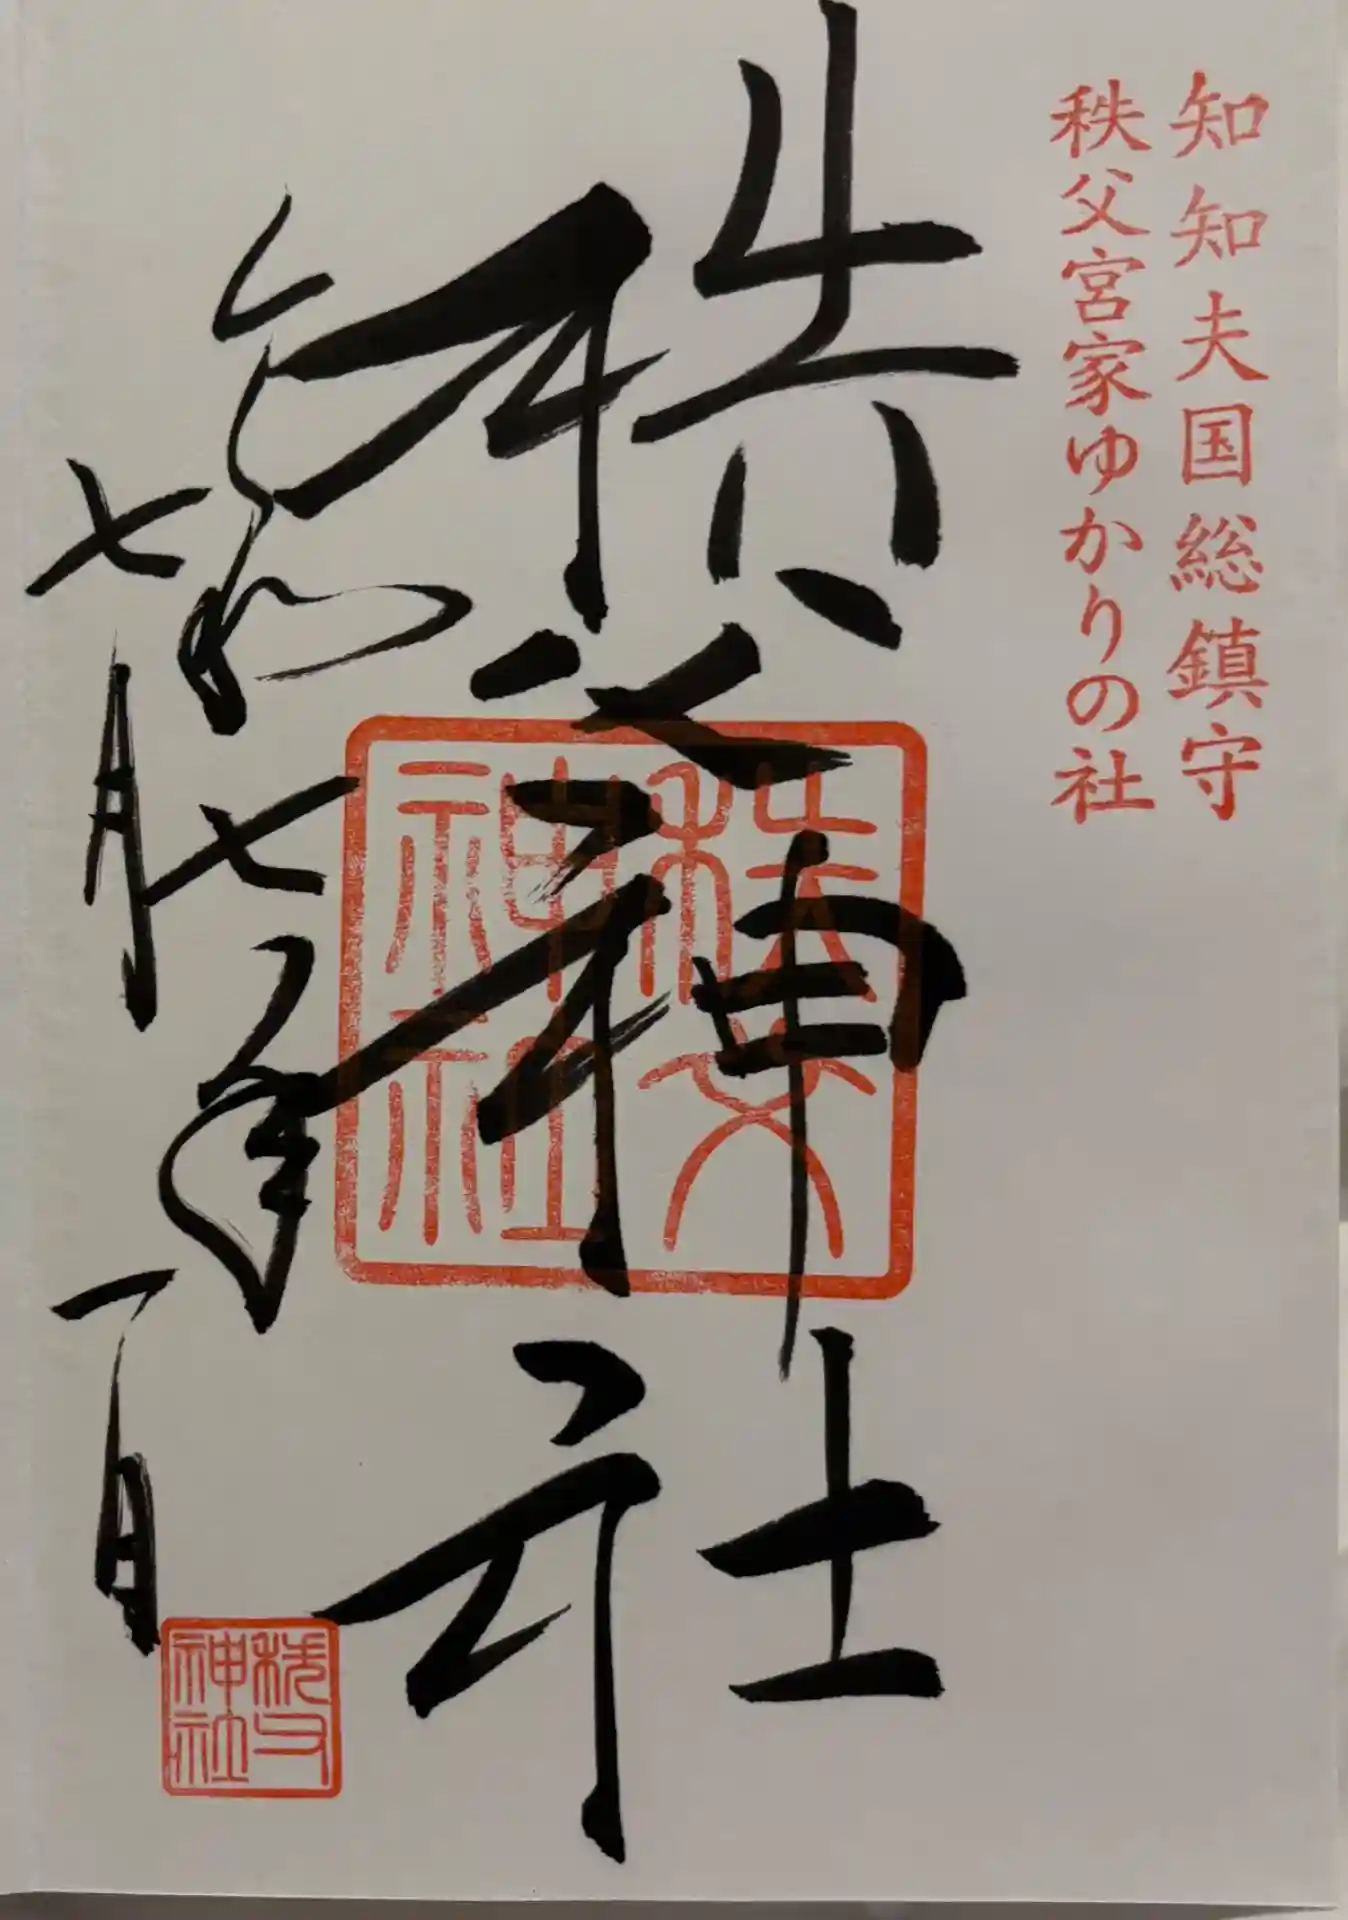 知知夫国総鎮守
秩父宮家ゆかりの社
秩父神社
秩父神社
令和七年
七月一日
秩父神社